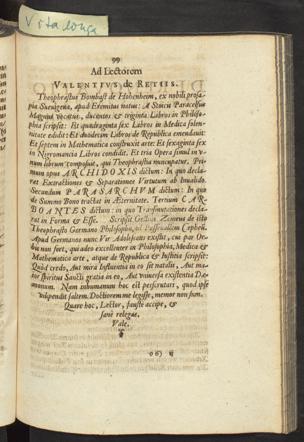 Vita longa
99
Ad Lectorem
VALENTIVS de RETIIS.
Theophrastus Bombast de Hohenheim, ex nobili prosa-
pia Suevigena, apud Eremitas natus: A Suicia Paracelsus
Magnus vocatus, ducentos & triginta Libros in Philoso-
phia scripsit: Et quadraginta sex Libros in Medica solen-
nitate edidit: Et duodecim Libros de Republica emendavit:
Et septem in Mathematica construxit arte: Et sexaginta sex
in Nigromantia Libros condidit. Et tria Opera simul in v-
num librum composuit, qui Theophrastia nuncupatur. Pri-
mum opus ARCHIDOXIS dictum: In quo decla-
rat Extractiones & Separationes Virtutum ab Invalido.
Secundum PARASARCHVM dictum: In quo
de Summo Bono tractat in Æternitate. Tertium CAR-
BOANTES dictum: in quo Transmutationes decla-
rat in Forma & Esse. Scripsit Gestion Zeneus de isto
Theophrasto Germano Philosopho,
Apud Germanos nunc Vir Adolescens existit, cui par Or-
bis non fert, qui adeo excellenter in Philosophia, Medica &
Mathematica arte, atque de Republica & Iustitia scripsit:
Quod credo, Aut mira Influentia in eo sit natalis, Aut ma-
jor Spiritus Sancti gratia in eo, Aut universa existentia Dæ-
monum. Nam inhumanum hoc est perscrutari, quod ipse
dispendit saltem. Doctiorem me legisse, memor non sum.
Quare hoc, Lector, fauste accipe, &
sane relegas.
Vale.